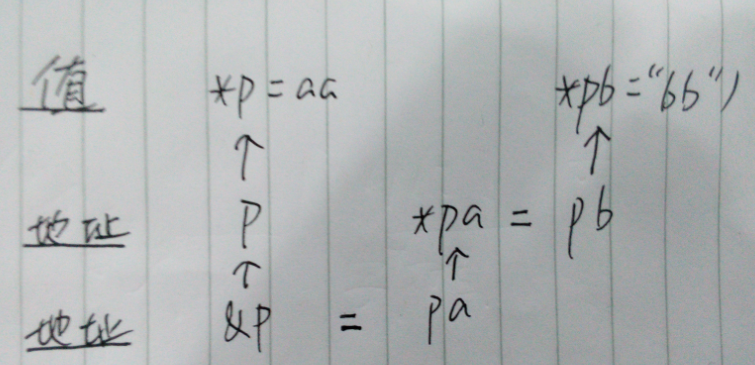 值 *p = aa *pb = "bb")
↑ ↑
地址 p *pa = pb
↑ ↑
地址 &p = pa